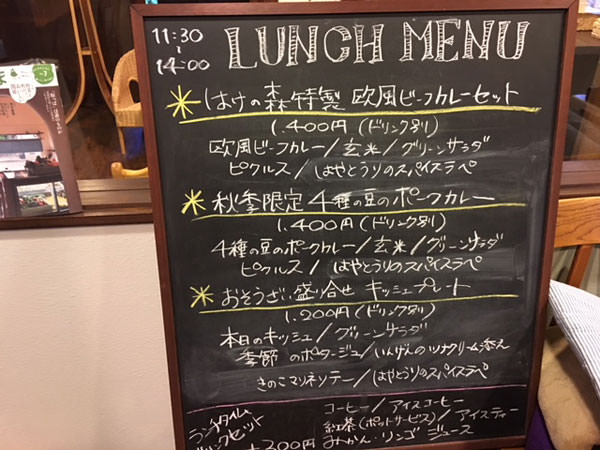 11:30
~
14:00
LUNCH MENU
はけの森特製 欧風ビーフカレーセット
1.400円(ドリンク別)
欧風ビーフカレー/玄米/グリーンサラダ
ピクルス/はやとうりのスパイスラペ
秋季限定 4種の豆のポークカレー
1.400円(ドリンク別)
4種の豆のポークカレー/玄米/グリーンサラダ
ピクルス/はやとうりのスパイスラペ
おそうざい盛り合せ キッシュプレート
1.200円(ドリンク別)
本日のキッシュ/グリーンサラダ
季節のポタージュ/いんげんのツナクリーム添え
きのこマリネソテー/はやとうりのスパイスラペ
ランチタイム
ドリンクセット
+300円
コーヒー/アイスコーヒー
紅茶(ポットサービス)/アイスティー
みかん・リンゴ ジュース